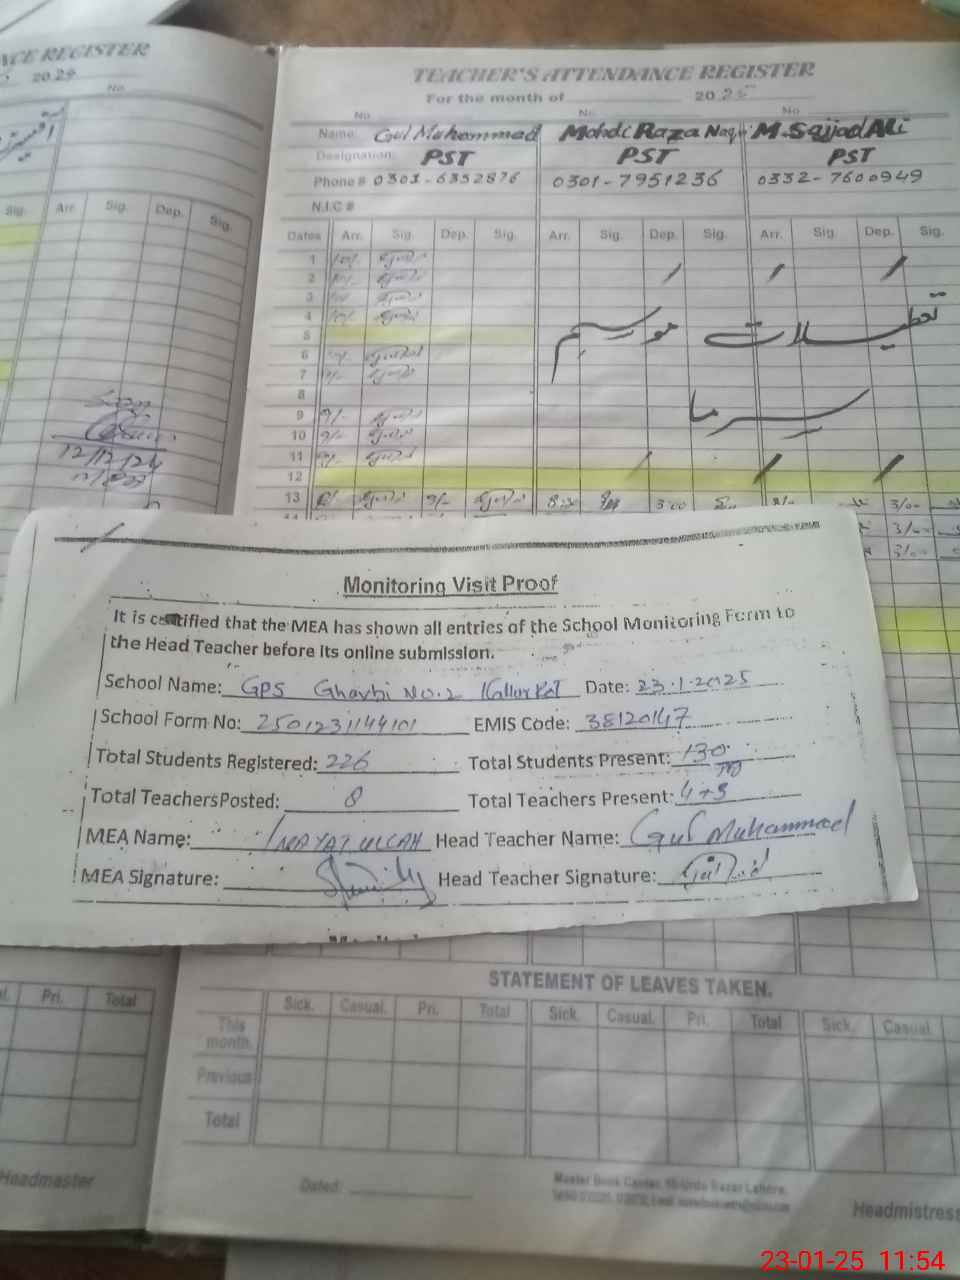 CE REGISTER
2024
No
Sig. Arr. Sig. Dep. Sig.
12/12/24
TEACHER'S ATTENDANCE REGISTER
For the month of 2025
No. No. No.
Name. Gul Muhammad Mohd: Raza Naqvi M. Sajjad Ali
Designation. PST PST PST
Phone # 0303-6352876 0301-7951236 0332-7600949
N.I.C #
Dates Arr. Sig. Dep. Sig. Arr. Sig. Dep. Sig. Arr. Sig. Dep. Sig.
1
2
3
4
5
6
7
تعطیلات موسم
8
سرما
9 9/-
10 9/-
11
12
13 9/- 8:30 3:00 8/- 3/00
3/00
3/00
Monitoring Visit Proof
It is certified that the MEA has shown all entries of the School Monitoring Form to
the Head Teacher before its online submission.
School Name: GPS Gharbi No.2 Kallur Kot Date: 23.1.2025
School Form No: 2501231144101 EMIS Code: 38120147
Total Students Registered: 226 Total Students Present: 130
Total Teachers Posted: 8 Total Teachers Present: 4+3
MEA Name: INAYAT ULLAH Head Teacher Name: Gul Muhammad
MEA Signature: Head Teacher Signature:
STATEMENT OF LEAVES TAKEN.
Pri. Total
Sick. Casual. Pri. Total Sick. Casual. Pri. Total Sick. Casual.
This month.
Previous
Total
Headmaster
Dated:
Master Book Center, Urdu Bazar Lahore.
Headmistress
23-01-25 11:54